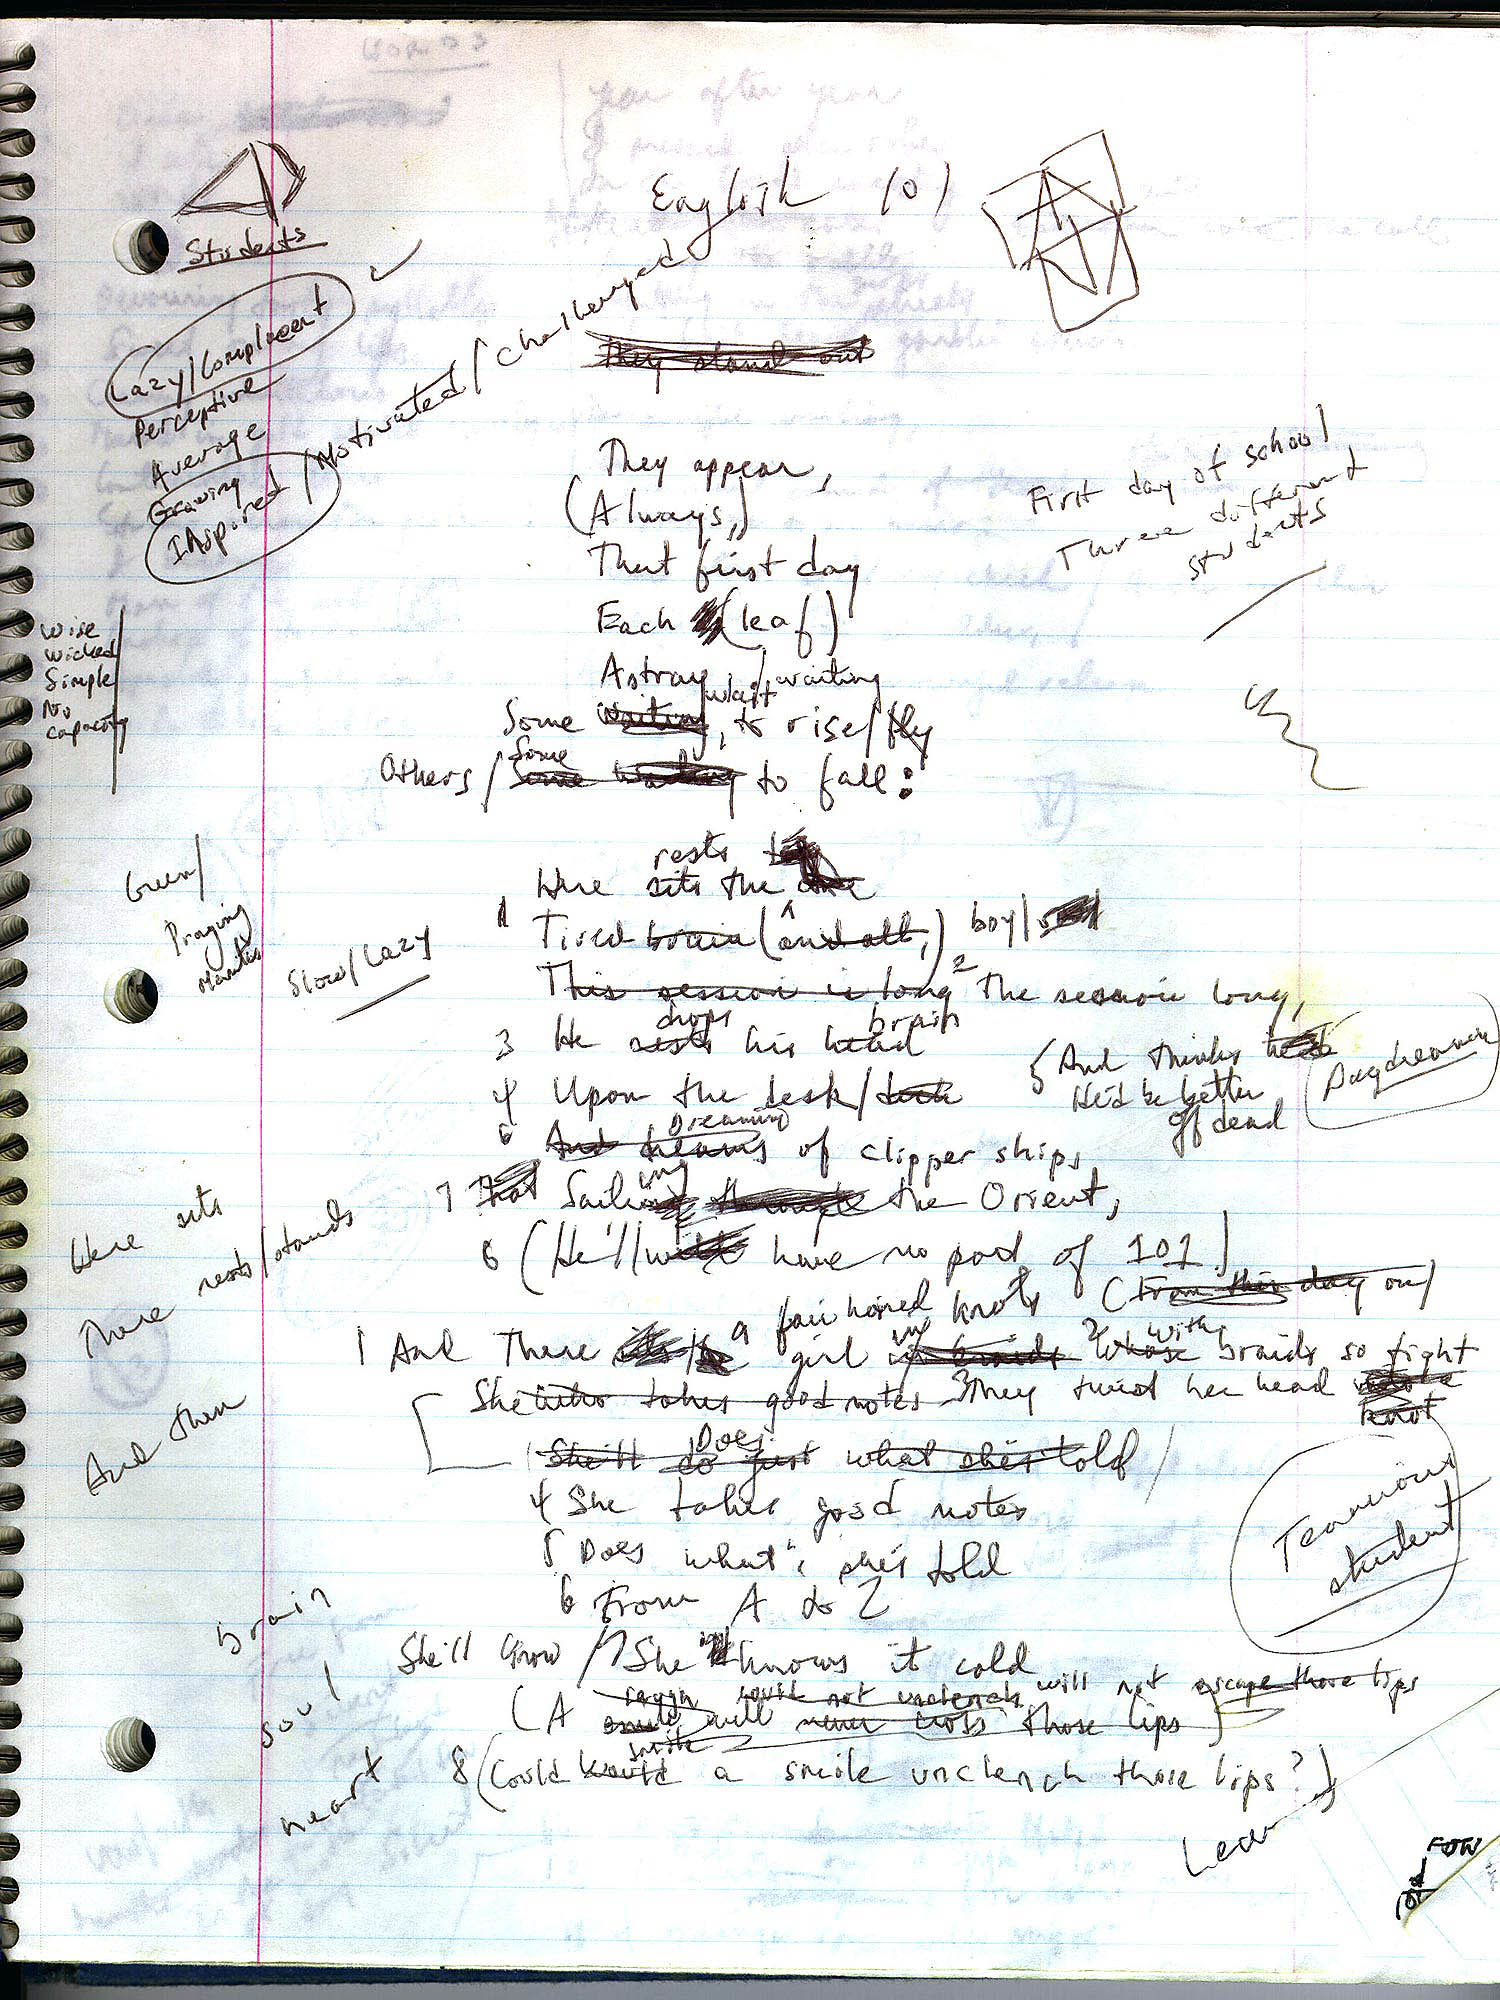 English 101
Students
Lazy/Complacent
Perceptive
Average
Growing
Inspired/Motivated/Challenged
They stand out
They appear,
(Always,)
That first day
Each (leaf)
Astray, / waiting
Some waiting, wait to rise/fly
Others / Some some waiting to fall:
First day of school,
Three different
students
Wise
Wicked
Simple
No
capacity
Green/
Praying
Mantis
Slow/Lazy
rests
Here sits the one
1 Tired brain (and all,) boy/
This session is long 2 The session long,
drops brain
3 He rests his head
4 Upon the desk/
{And thinks
He'd be better
off dead
Daydreamer
Dreaming
6 And dreams of clipper ships,
7 That Sailing through the Orient,
6 (He'll will have no part of 101.)
(From this day on/
Here sits
There rests/stands
And then
fair haired knots
1 And There a girl in braids 2 whose with braids so tight
She who takes good notes 3 They twist her head
knot
Does
She'll do just what she's told/
4 She takes good notes
5 Does what she's told
6 From A to Z
Tenacious
student
brain
soul
heart
She'll grow / 7 She knows it cold
could not unclench will not escape those lips
(A smile will never cross those lips)
smile
8 (Could would a smile unclench those lips?)
Lean
FOW